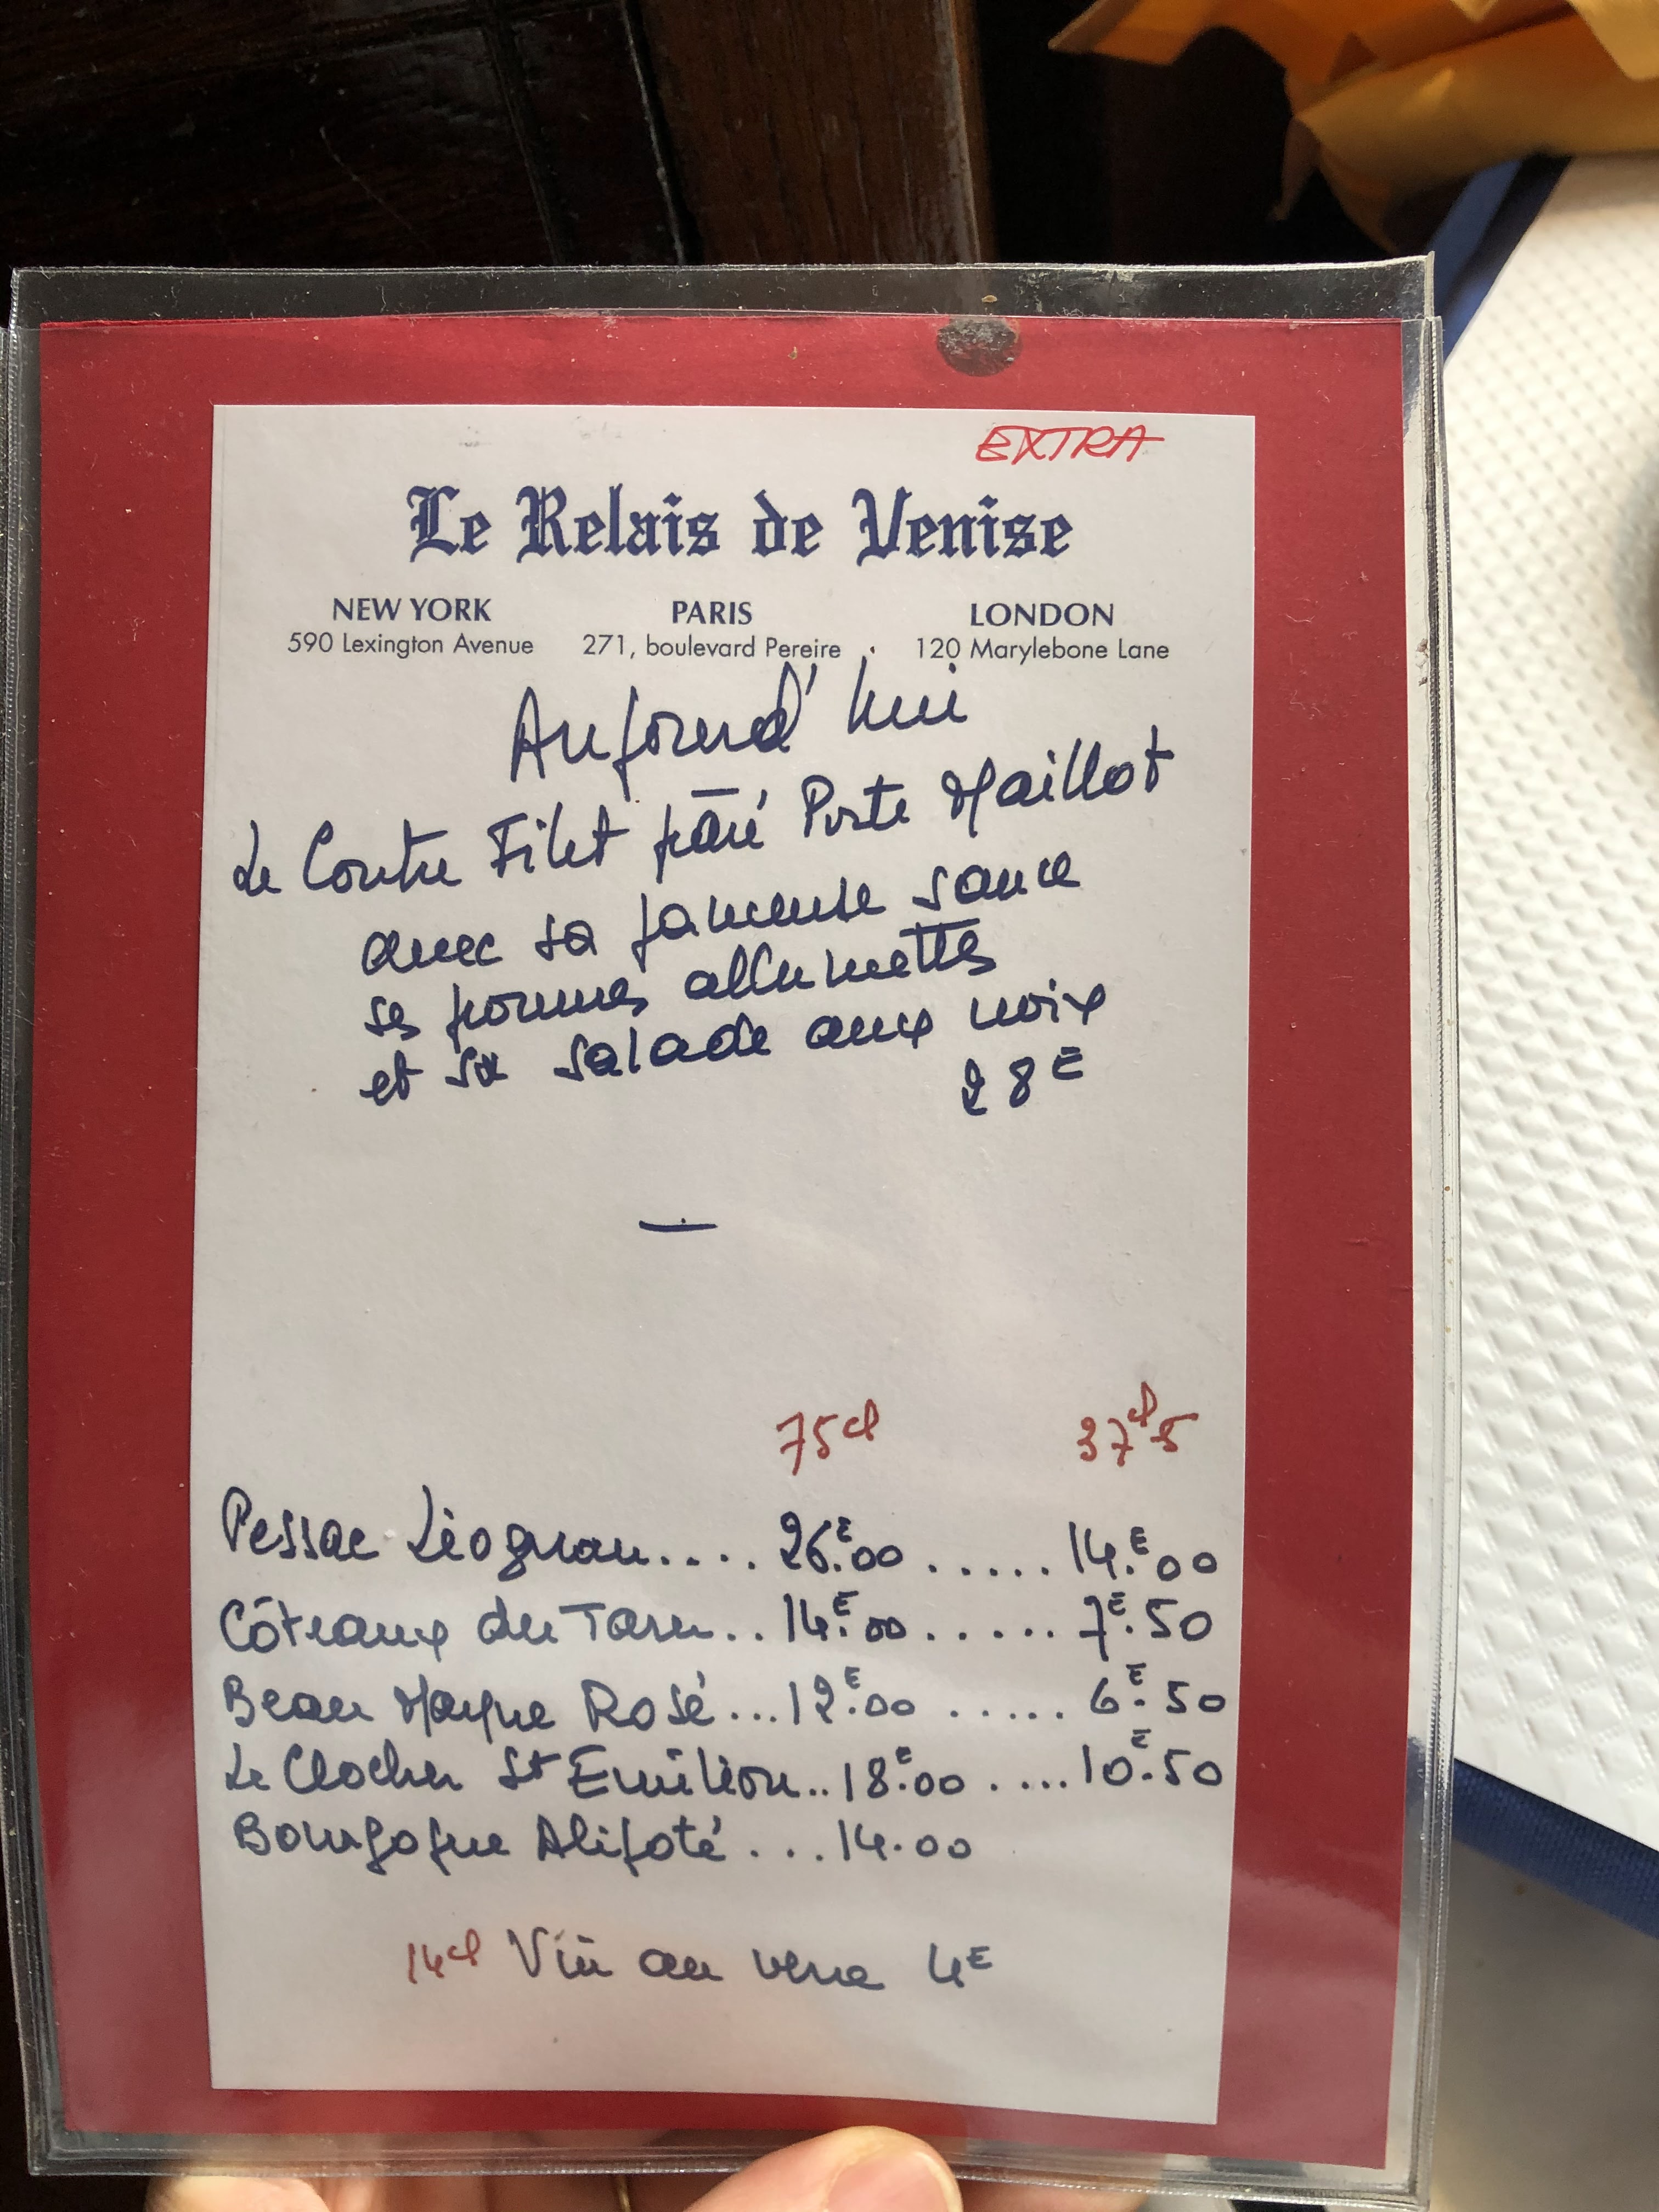 EXTRA
Le Relais de Venise
NEW YORK PARIS LONDON
590 Lexington Avenue 271, boulevard Pereire 120 Marylebone Lane
Aujourd'hui
Le Contre Filet paré Porte Maillot
avec sa fameuse sauce
ses pommes allumettes
et sa salade aux noix
28E
75cl 37cl5
Pessac Léognan.... 26E.00 ...... 14.E00
Côteaux du Tarn.. 14E.00 ...... 7E.50
Beau Mayne Rosé...12E.00 ..... 6E.50
Le Clocher St Emilion..18E.00 .....10E.50
Bourgogne Aligoté ....14.00
14cl Vin au verre 4E